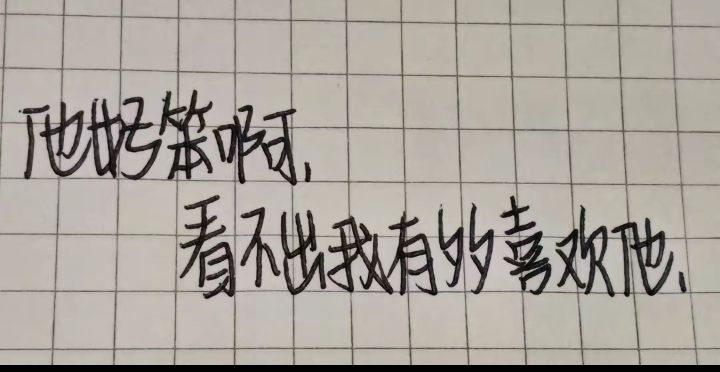 他好笨啊,
看不出我有多喜欢他,